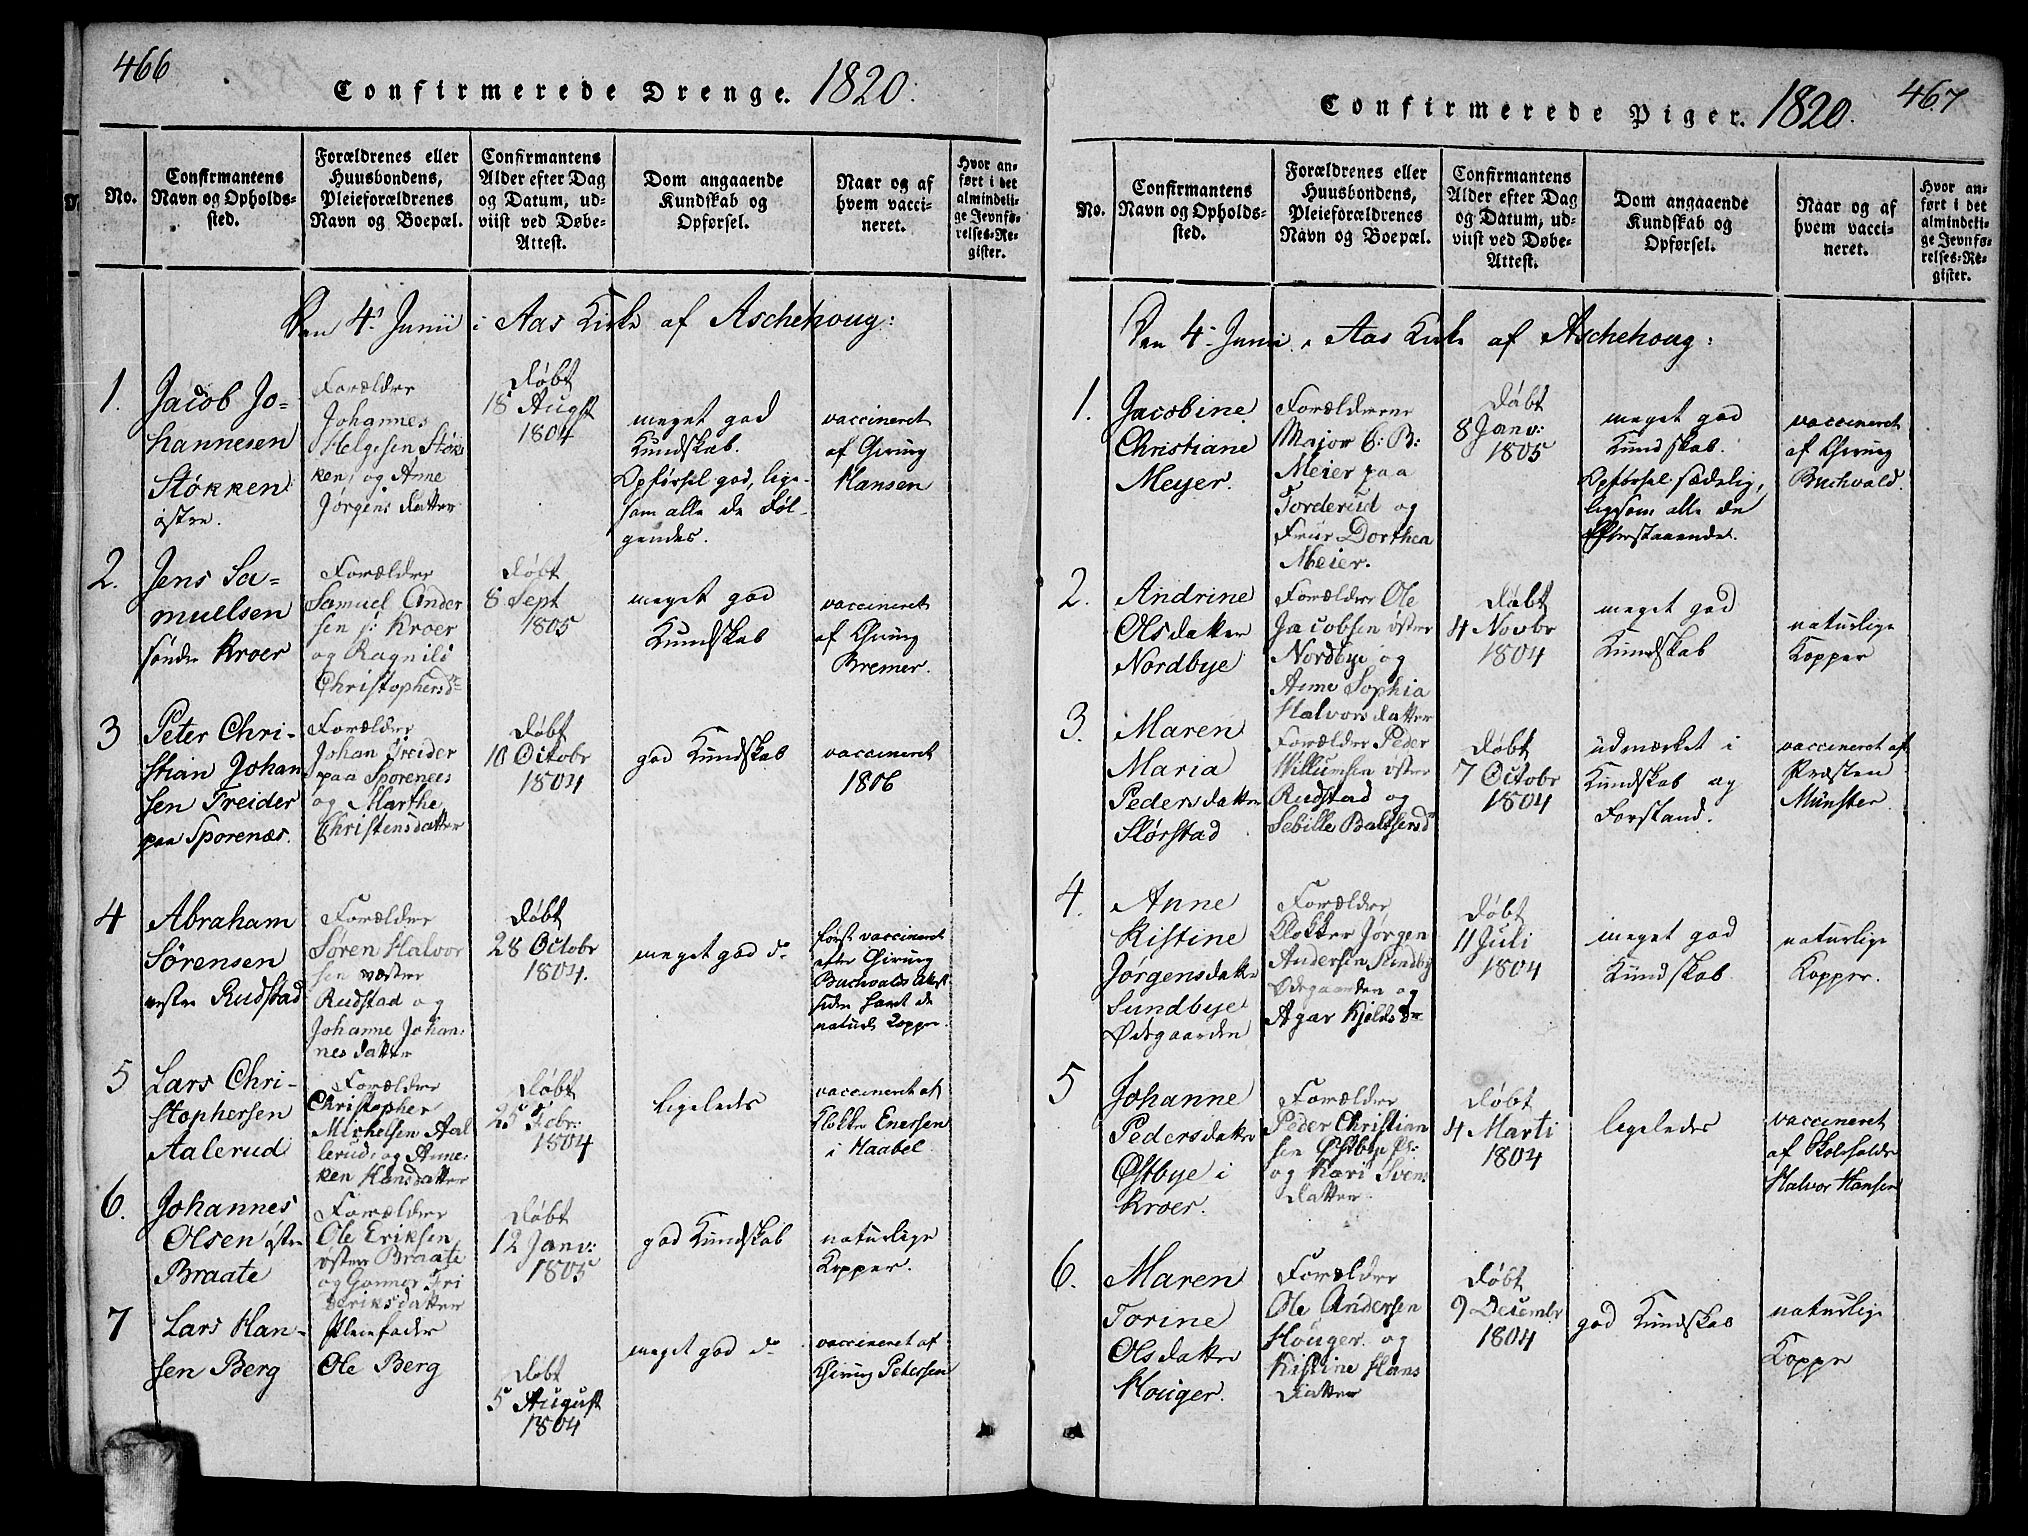 466
Confirmerede Drenge. 1820.
No.
Confirmantens
Navn og Opholds-
sted.
Forældrenes eller
Huusbondens,
Pleieforældrenes
Navn og Boepæl.
Confirmantens
Alder efter Dag
og Datum, ud-
viist ved Døbe-
Attest.
Dom angaaende
Kundskab og
Opførsel.
Naar og af
hvem vacci-
neret.
Hvor an-
ført i det
almindeli-
ge Jevnfø-
relses-Re-
gister.
Den 4. Junii i Aas Kirke af Aschehoug:
1.
Jacob Jo-
hannesen
Støkken
østre.
Forældre
Johannes
Helgesen Støk
ken, og Anne
Jørgens datter
døbt
18 Augst
1804
meget god
Kundskab.
Opførsel god, lige-
som alle de føl-
gendes.
vaccineret
af Chirurg
Hansen
2.
Jens Sa-
muelsen
søndre Kroer
Forældre
Samuel Ander
sen s: Kroer
og Ragnild
Christophersdr
døbt
8 Sept
1805
meget god
Kundskab
vaccineret
af Chirurg
Bremer.
3
Peter Chri-
stian Johan
sen Treider
paa Sporenæs.
Forældre
Johan Treider
paa Sporenees
og Marthe
Christensdatter
døbt
10 Octobr
1804
god Kundskab
vaccineret
1806
4
Abraham
Sørensen
vestre Rudstad
Forældre
Søren Halvor
sen væstre
Rudstad og
Johanne Johan-
nesdatter
døbt
28 Octobr
1804.
meget god do
først vaccineret
efter Chirurg
Buchvalds Attest
siden havt de
naturl: Kopper.
5
Lars Chri-
stophersen
Aalerud
Forældre
Christopher
Michelsen Aal
lerud; og Anne-
ken Hansdatter
døbt
25 Febr:
1804
ligeledes
vaccineret af
Klokker Enersen
i Haabel
6.
Johannes
Olsen østre
Braate
Forældre
Ole Eriksen
østre Braate
og Gunnor Fri
deriksdatter
døbt
12 Janv:
1805
god Kundskab
naturlige
Kopper.
7
Lars Han-
sen Berg
Pleiefader
Ole Berg
døbt
5 August
1804
meget god do
vaccineret af
Chirurg Petersen
467
Confirmerede Piger. 1820.
No.
Confirmantens
Navn og Opholds-
sted.
Forældrenes eller
Huusbondens,
Pleieforældrenes
Navn og Boepæl.
Confirmantens
Alder efter Dag
og Datum, ud-
viist ved Døbe-
Attest.
Dom angaaende
Kundskab og
Opførsel.
Naar og af
hvem vacci-
neret.
Hvor an-
ført i det
almindeli-
ge Jevnfø-
relses-Re-
gister.
Den 4. Junii i Aas Kirke af Aschehoug:
1.
Jacobine
Christiane
Meyer.
Forældrene
Major C: B:
Meier paa
Torderud og
Frue Dorthea
Meier.
døbt
8 Janv:
1805
meget god
Kundskab.
Opførsel sædelig,
ligesom alle de
Efterstaaendes.
vaccineret
af Chirurg
Buchvald.
2.
Andrine
Olsdatter
Nordbye
Forældre Ole
Jacobsen østre
Nordbye og
Anne Sophia
Halvorsdatter
døbt
4 Novbr
1804
meget god
Kundskab
naturlige
Kopper
3.
Maren
Maria
Pedersdatter
Slørstad
Forældre Peder
Willumsen østre
Rudstad og
Sebille Baltsersdr
døbt
7 Octobr
1804
udmærket i
Kundskab og
Forstand.
vaccineret af
Præsten
Münster.
4.
Anne
Kistine
Jørgensdatter
Sundbye
Ødegaarden
Forældre
Klokker Jørgen
Andersen Sundby
Ødegaarden og
Agar Kjeldsdr
døbt
11 Juli
1804
meget god
Kundskab.
naturlige
Kopper.
5
Johanne
Pedersdatter
Østbye i
Kroer.
Forældre
Peder Christian
sen Østbye
og Kari Svens
datter.
døbt
4 Marti
1804
ligeledes
vaccineret
af Skoleholder
Halvor Hansen
6.
Maren
Torine
Olsdatter
Houger.
Forældre
Ole Andersen
Houger og
Kistine Hans
datter
døbt
9 Decembr
1804
god Kundskab
naturlige
Kopper